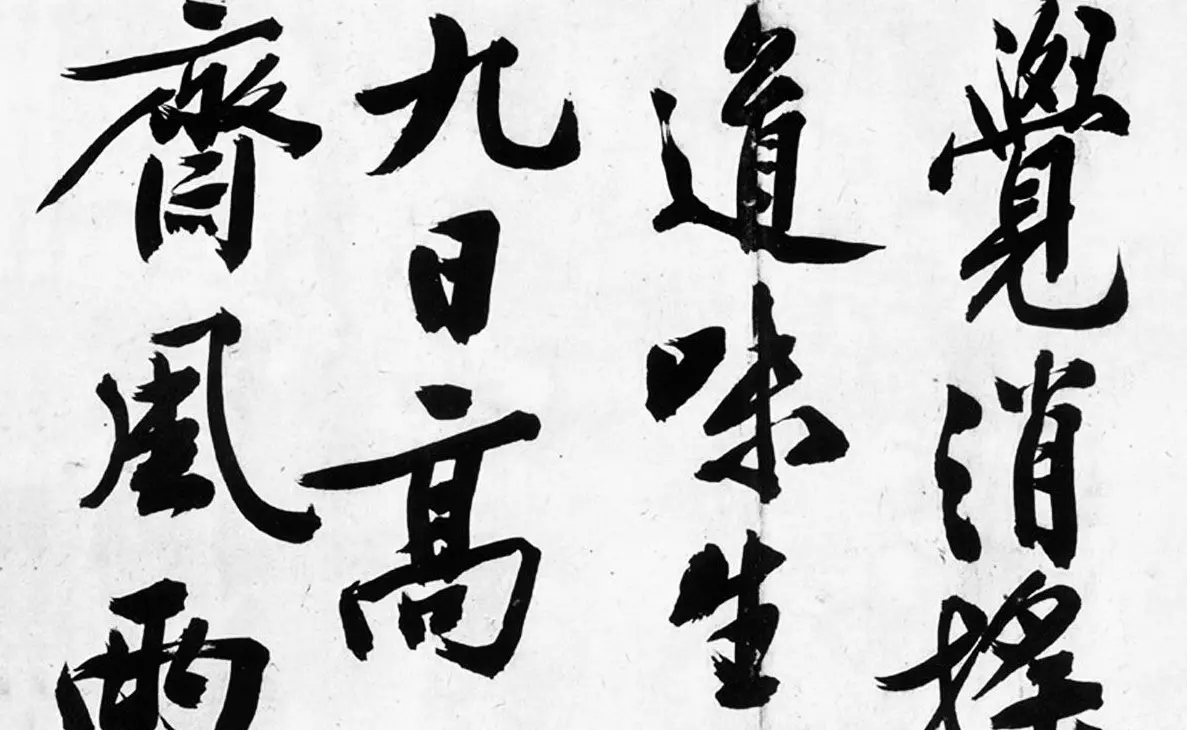 覺消搖
道味生
九日高
齋風雨